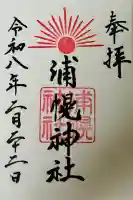 奉拝
浦幌神社
浦幌
神社
令和八年二月二十三日